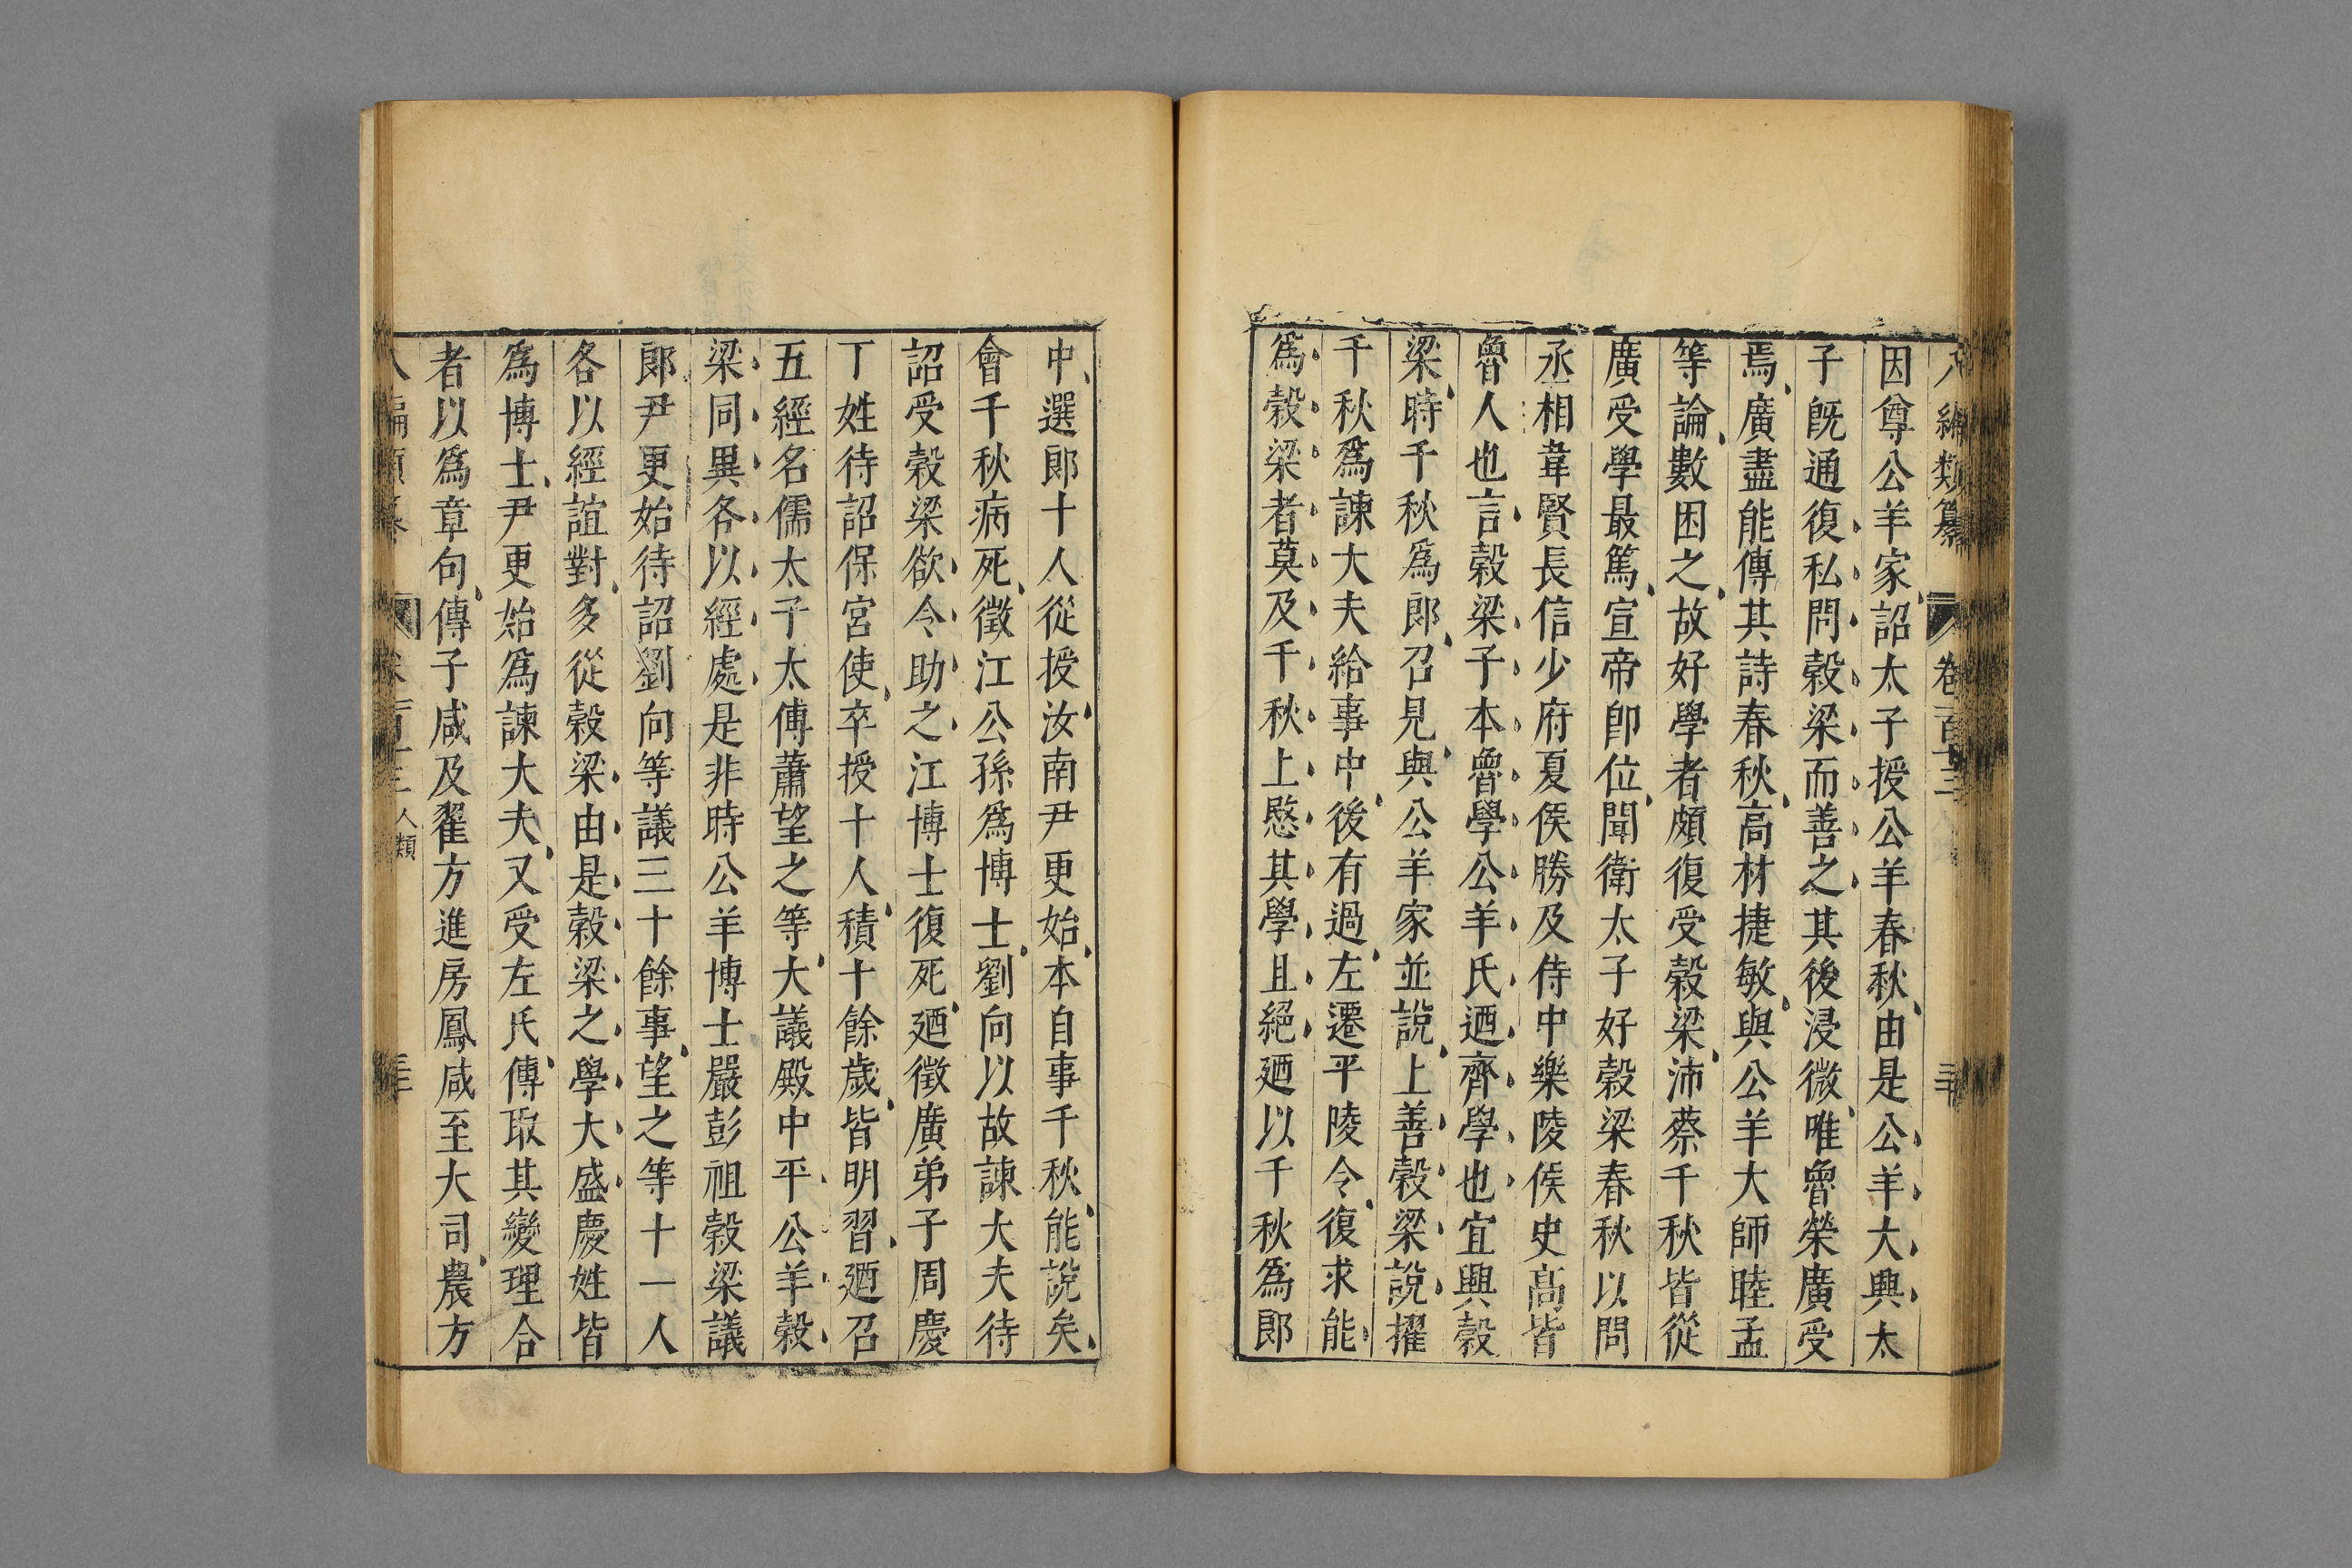 八編類纂 卷一百十三 三十
因尊公羊家詔太子授公羊春秋由是公羊大興太
子旣通復私問穀梁而善之其後浸微唯魯榮廣受
焉廣盡能傳其詩春秋高材捷敏與公羊大師眭孟
等論數困之故好學者頗復受穀梁沛蔡千秋皆從
廣受學最篤宣帝卽位聞衛太子好穀梁春秋以問
丞相韋賢長信少府夏侯勝及侍中樂陵侯史高皆
魯人也言穀梁子本魯學公羊氏迺齊學也宜興穀
梁時千秋爲郎召見與公羊家並說上善穀梁說擢
千秋爲諫大夫給事中後有過左遷平陵令復求能
爲穀梁者莫及千秋上愍其學且絕廼以千秋爲郎
中選郎十人從授汝南尹更始本自事千秋能說矣
會千秋病死徵江公孫爲博士劉向以故諫大夫待
詔受穀梁欲令助之江博士復死廼徵廣弟子周慶
丁姓待詔保宮使卒授十人積十餘歲皆明習廼召
五經名儒太子太傅蕭望之等大議殿中平公羊穀
梁同異各以經處是非時公羊博士嚴彭祖穀梁議
郎尹更始待詔劉向等議三十餘事望之等十一人
各以經誼對多從穀梁由是穀梁之學大盛慶姓皆
爲博士尹更始爲諫大夫又受左氏傳取其變理合
者以爲章句傳子咸及翟方進房鳳咸至大司農方
人類